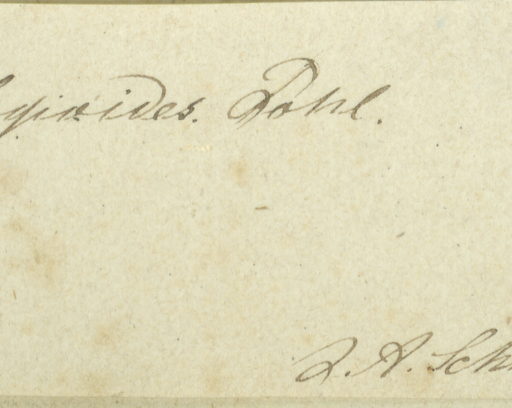 gioides. Pohl.
J. A. Sch